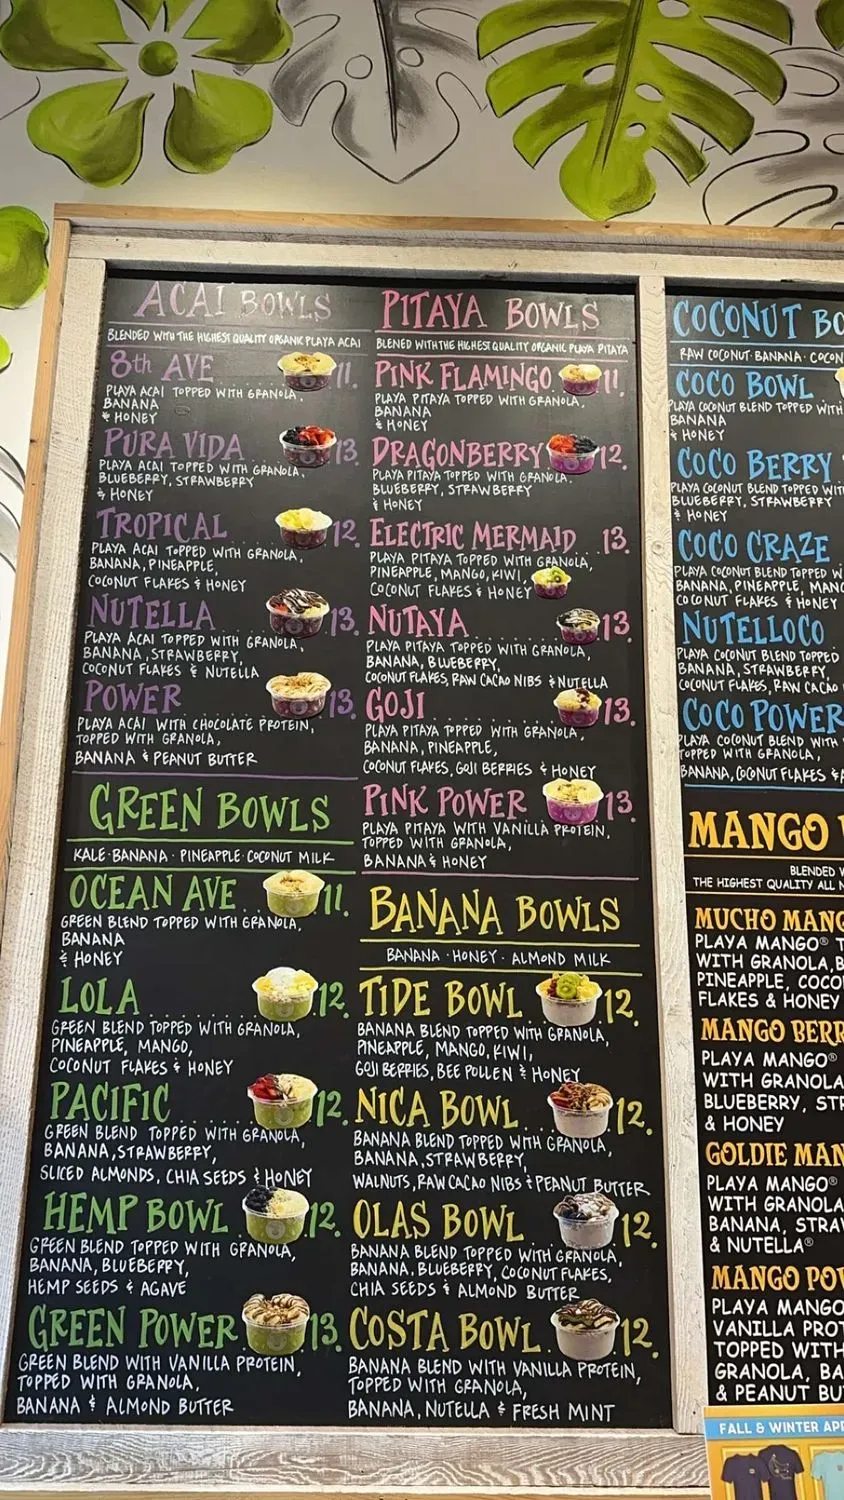 ACAI BOWLS
BLENDED WITH THE HIGHEST QUALITY ORGANIC PLAYA ACAI
8th AVE 11.
PLAYA ACAI TOPPED WITH GRANOLA,
BANANA
& HONEY
PURA VIDA 13
PLAYA ACAI TOPPED WITH GRANOLA,
BLUEBERRY, STRAWBERRY
& HONEY
TROPICAL 12.
PLAYA ACAI TOPPED WITH GRANOLA,
BANANA, PINEAPPLE,
COCONUT FLAKES & HONEY
NUTELLA 13.
PLAYA ACAI TOPPED WITH GRANOLA,
BANANA, STRAWBERRY,
COCONUT FLAKES & NUTELLA
POWER 13.
PLAYA ACAI WITH CHOCOLATE PROTEIN,
TOPPED WITH GRANOLA,
BANANA & PEANUT BUTTER
GREEN BOWLS
KALE · BANANA · PINEAPPLE · COCONUT MILK
OCEAN AVE 11.
GREEN BLEND TOPPED WITH GRANOLA,
BANANA
& HONEY
LOLA 12.
GREEN BLEND TOPPED WITH GRANOLA,
PINEAPPLE, MANGO,
COCONUT FLAKES & HONEY
PACIFIC 12.
GREEN BLEND TOPPED WITH GRANOLA,
BANANA, STRAWBERRY,
SLICED ALMONDS, CHIA SEEDS & HONEY
HEMP BOWL 12.
GREEN BLEND TOPPED WITH GRANOLA,
BANANA, BLUEBERRY,
HEMP SEEDS & AGAVE
GREEN POWER 13.
GREEN BLEND WITH VANILLA PROTEIN,
TOPPED WITH GRANOLA,
BANANA & ALMOND BUTTER
PITAYA BOWLS
BLENED WITH THE HIGHEST QUALITY ORGANIC PLAYA PITAYA
PINK FLAMINGO 11.
PLAYA PITAYA TOPPED WITH GRANOLA,
BANANA
& HONEY
DRAGONBERRY 12.
PLAYA PITAYA TOPPED WITH GRANOLA,
BLUEBERRY, STRAWBERRY
& HONEY
ELECTRIC MERMAID 13.
PLAYA PITAYA TOPPED WITH GRANOLA,
PINEAPPLE, MANGO, KIWI,
COCONUT FLAKES & HONEY
NUTAYA 13.
PLAYA PITAYA TOPPED WITH GRANOLA,
BANANA, BLUEBERRY,
COCONUT FLAKES, RAW CACAO NIBS & NUTELLA
GOJI 13.
PLAYA PITAYA TOPPED WITH GRANOLA,
BANANA, PINEAPPLE,
COCONUT FLAKES, GOJI BERRIES & HONEY
PINK POWER 13.
PLAYA PITAYA WITH VANILLA PROTEIN,
TOPPED WITH GRANOLA,
BANANA & HONEY
BANANA BOWLS
BANANA · HONEY · ALMOND MILK
TIDE BOWL 12.
BANANA BLEND TOPPED WITH GRANOLA,
PINEAPPLE, MANGO, KIWI,
GOJI BERRIES, BEE POLLEN & HONEY
NICA BOWL 12.
BANANA BLEND TOPPED WITH GRANOLA,
BANANA, STRAWBERRY,
WALNUTS, RAW CACAO NIBS & PEANUT BUTTER
OLAS BOWL 12.
BANANA BLEND TOPPED WITH GRANOLA,
BANANA, BLUEBERRY, COCONUT FLAKES,
CHIA SEEDS & ALMOND BUTTER
COSTA BOWL 12.
BANANA BLEND WITH VANILLA PROTEIN,
TOPPED WITH GRANOLA,
BANANA, NUTELLA & FRESH MINT
COCONUT BO
RAW COCONUT · BANANA · COCON
COCO BOWL
PLAYA COCONUT BLEND TOPPED WITH
BANANA
& HONEY
COCO BERRY
PLAYA COCONUT BLEND TOPPED WIT
BLUEBERRY, STRAWBERRY
& HONEY
COCO CRAZE
PLAYA COCONUT BLEND TOPPED W
BANANA, PINEAPPLE, MANG
COCONUT FLAKES & HONEY
NUTELLOCO
PLAYA COCONUT BLEND TOPPED
BANANA, STRAWBERRY,
COCONUT FLAKES, RAW CACAO
COCO POWER
PLAYA COCONUT BLEND WITH
TOPPED WITH GRANOLA,
BANANA, COCONUT FLAKES &
MANGO
BLENDED W
THE HIGHEST QUALITY ALL N
MUCHO MANG
PLAYA MANGO® T
WITH GRANOLA, B
PINEAPPLE, COCO
FLAKES & HONEY
MANGO BERR
PLAYA MANGO®
WITH GRANOLA
BLUEBERRY, STR
& HONEY
GOLDIE MAN
PLAYA MANGO®
WITH GRANOLA
BANANA, STRAW
& NUTELLA®
MANGO POW
PLAYA MANGO
VANILLA PROT
TOPPED WITH
GRANOLA, BA
& PEANUT BU
FALL & WINTER APP